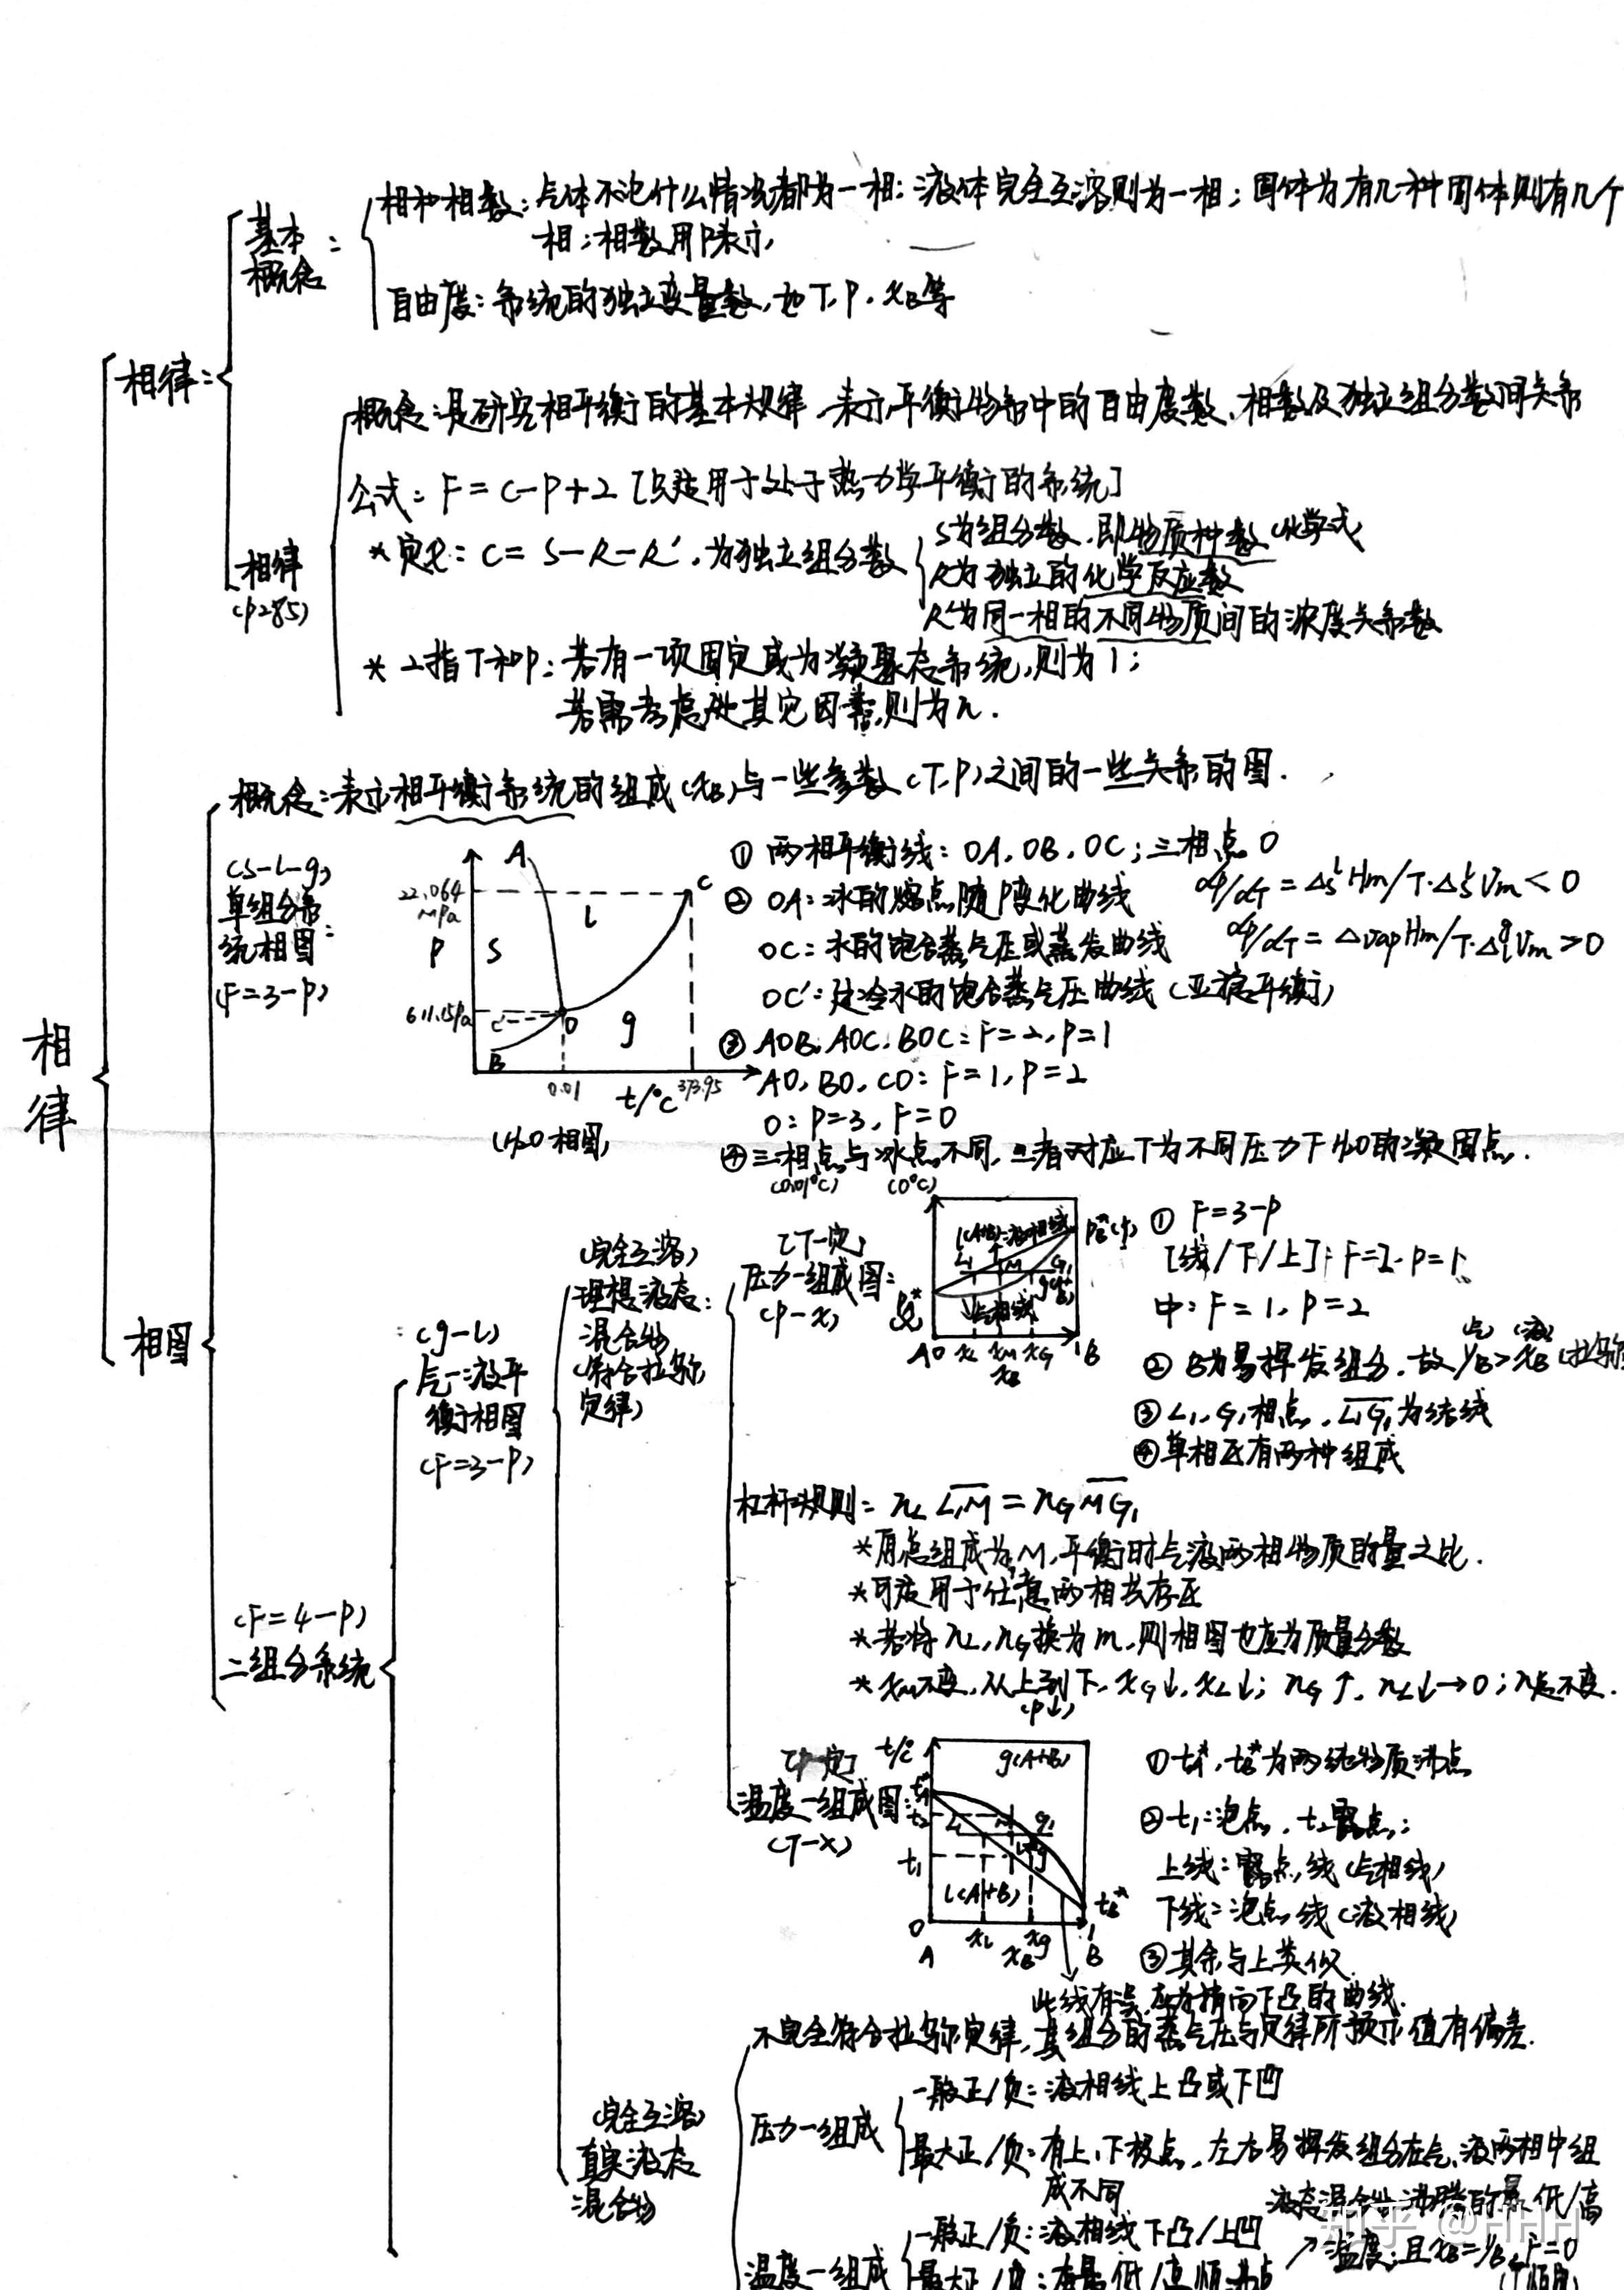 相和相数:气体不论什么情况都为一相;液体完全互溶则为一相;固体为有几种固体则有几个
相;相数用P表示
基本
概念:
自由度:系统的独立变量数,如T.P.xB等
相律:
概念:是研究相平衡的基本规律,表示平衡物系中的自由度数、相数及独立组分数间关系
公式:F=C-P+2[只适用于处于热力学平衡的系统]
相律
(P285)
*定义:C=S-R-R′,为独立组分数
S为组分数,即物质种数(化学式)
R为独立的化学反应数
R′为同一相的不同物质间的浓度关系数
*2指T和P:若有一项固定或为凝聚态系统,则为1;
若需考虑其它因素,则为n.
相律
概念:表示相平衡系统的组成(xB)与一些参数(T.P)之间的一些关系的图.
(s-l-g)
单组分系
统相图:
(F=3-P)
A
22.064
MPa
P
S
l
C
611.15Pa
C′
O
g
B
0.01
t/℃
373.95
(H2O相图)
① 两相平衡线:OA.OB.OC;三相点O
② OA:冰的熔点随P变化曲线 dp/dT=ΔslHm/T·ΔslVm<0
OC:水的饱合蒸气压或蒸发曲线 dp/dT=ΔvapHm/T·ΔlgVm>0
OC′:过冷水的饱合蒸气压曲线(亚稳平衡)
③ AOB.AOC.BOC:F=2,P=1
AO,BO,CO:F=1,P=2
O:P=3,F=0
④三相点与冰点不同,二者对应T为不同压力下H2O的凝固点.
(0.01℃) (0℃)
相图
(F=4-P)
二组分系统
(g-l)
气-液平
衡相图
(F=3-P)
(完全互溶)
理想液态:
混合物
(符合拉乌尔
定律)
[T一定]
压力-组成图:
(P-x)
l(A+B)液相线
PB*
L1
M
G1
g(A+B)
PA*
气相线
A 0 xL xM xG 1 B
xB
① F=3-P
[线/下/上]:F=2.P=1
中:F=1,P=2
② B为易挥发组分,故yB(气)>xB(液)
③L1,G1相点,L1G1为结线
④单相区有两种组成
杠杆规则:nL L1M=nG MG1
*原点组成为M,平衡时气液两相物质的量之比.
*可适用于任意两相共存区
*若将nL,nG换为m,则相图也应为质量分数
*xM不变,从上到下,xG↓,xL↓;nG↑,nL↓→0;n总不变.
(P↓)
[P一定]
温度-组成图:
(T-x)
t/℃
g(A+B)
tA*
t2
L1
M
G1
l+g
t1
l(A+B)
tB*
0
A
xL
xB
xg
1
B
①tA*,tB*为两纯物质沸点
②t1:泡点,t2露点;
上线:露点线(气相线)
下线:泡点线(液相线)
③其余与上类似
此线有误,应为稍向下凸的曲线.
(完全互溶)
真实液态
混合物
不完全符合拉乌尔定律,其组分的蒸气压与定律所预示值有偏差.
压力-组成
一般正/负:液相线上凸或下凹
最大正/负:有上、下极点,左右易挥发组分在气、液两相中组
成不同
温度-组成
一般正/负:液相线下凸/上凹
最大正/负:有最低/高恒沸点
液态混合物沸腾的最低/高
温度;且xB=yB,F=0
知乎 @HHH